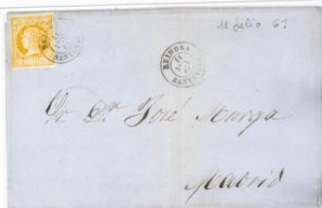 11 julio 61
REINOSA
11
SANTANDER
Sr. Dn. José Murga
Madrid